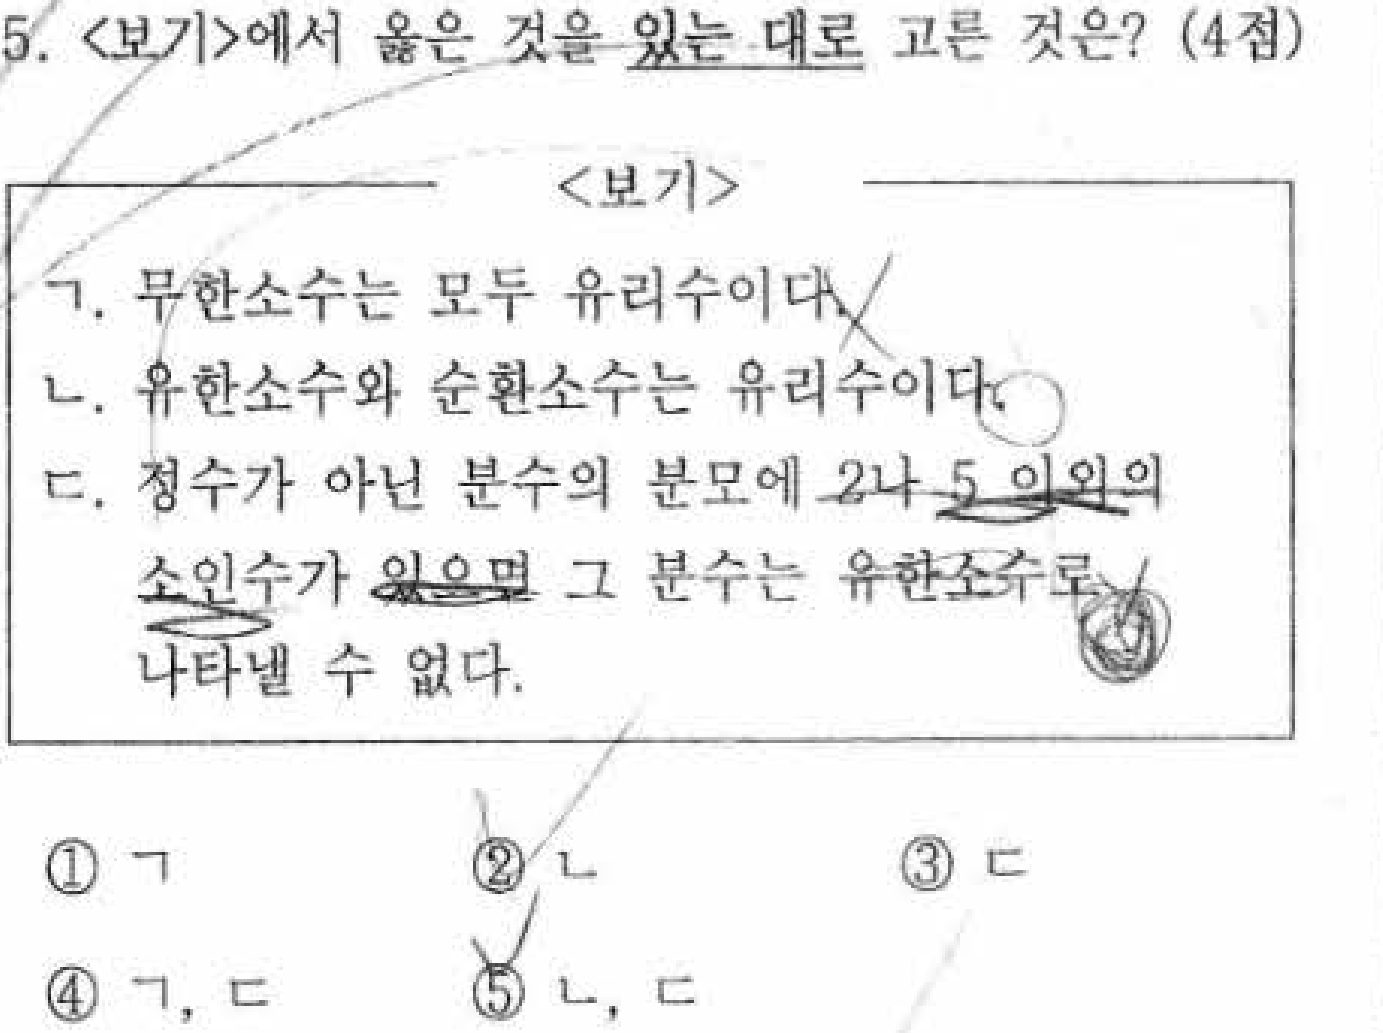 5. <보기>에서 옳은 것을 있는 대로 고른 것은? (4점)
<보기>
ㄱ. 무한소수는 모두 유리수이다.
ㄴ. 유한소수와 순환소수는 유리수이다.
ㄷ. 정수가 아닌 분수의 분모에 2나 5 이외의
소인수가 있으면 그 분수는 유한소수로
나타낼 수 없다.
① ㄱ ② ㄴ ③ ㄷ
④ ㄱ, ㄷ ⑤ ㄴ, ㄷ